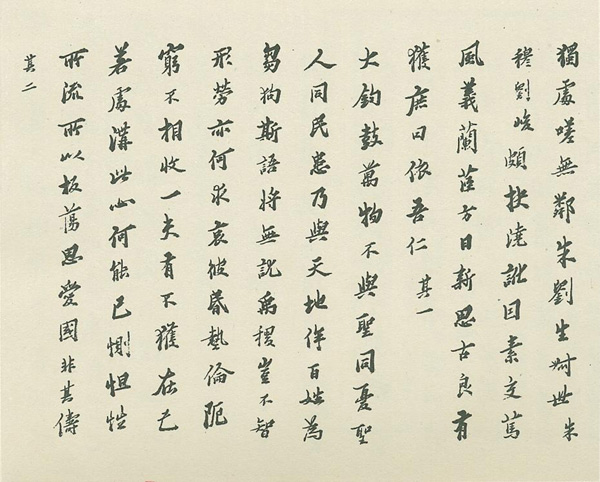 獨處嗟無鄰朱劉生叔世朱
穆劉峻頗扶澆訛目素交篤
風義蘭茝方日新思古良有
獲庶曰依吾仁 其一
大鈞鼓萬物不與聖同憂聖
人同民患乃與天地侔百姓為
芻狗斯語將無訧禹稷豈不智
形勞亦何求哀彼昏墊倫阨
窮不相收一夫有不獲在己
若處溝此心何能已惻怛性
所流所以板蕩思愛國非其儔
其二